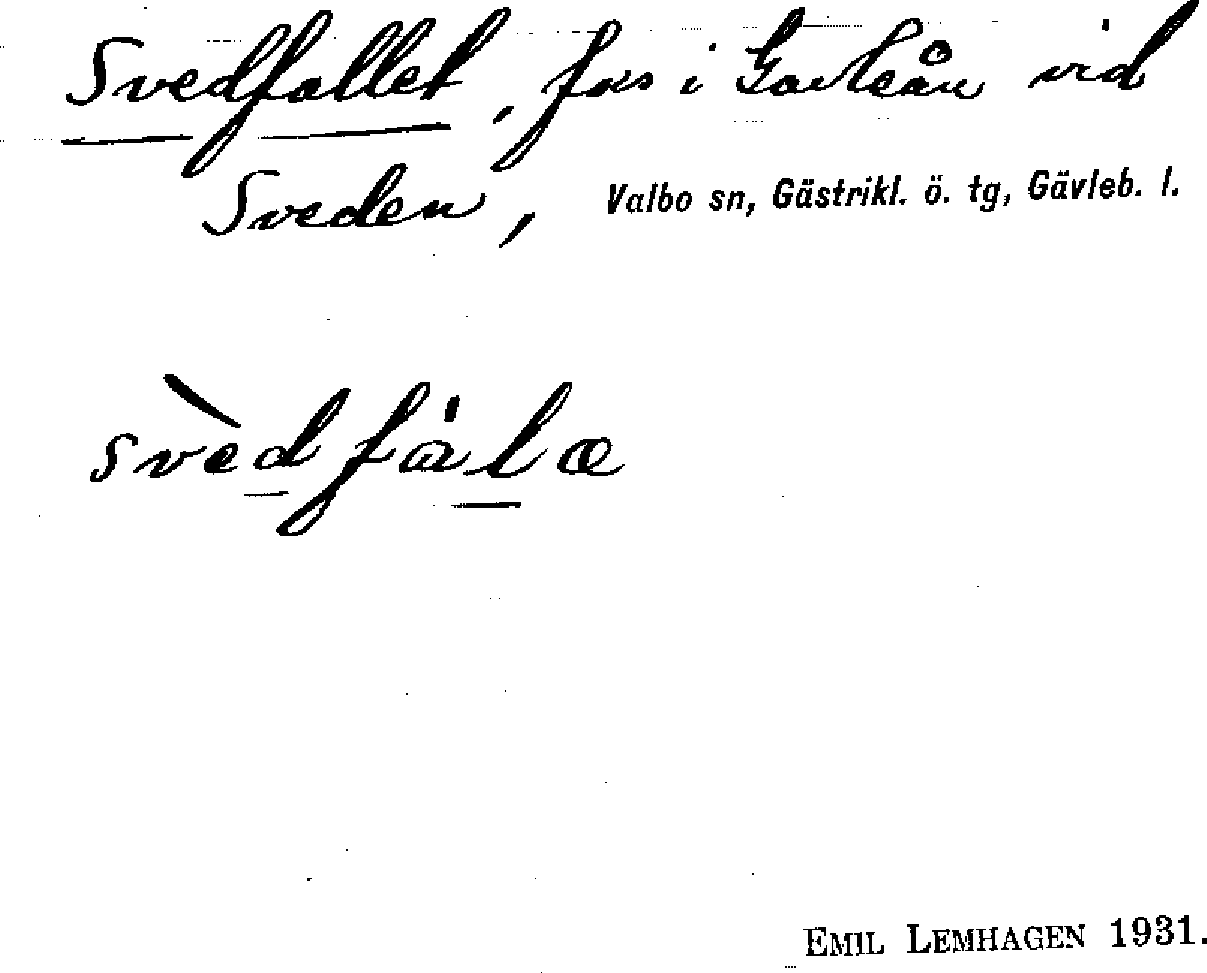 Svedfallet, fors i Gavleån vid
Sveden, Valbo sn, Gästrikl. ö. tg, Gävleb. l.
svèdfàlæ
EMIL LEMHAGEN 1931.